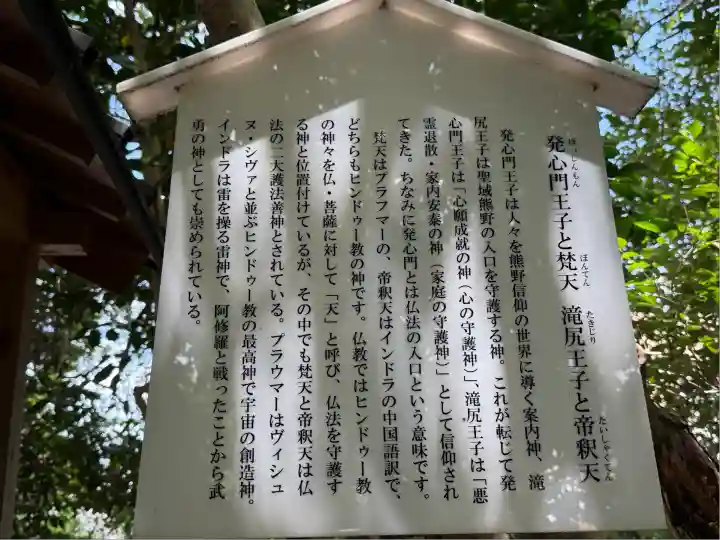 発心門王子と梵天　滝尻王子と帝釈天
ほっしんもん　ぼんてん　たきじり　たいしゃくてん
発心門王子は人々を熊野信仰の世界に導く案内神、滝
尻王子は聖域熊野の入口を守護する神。これが転じて発
心門王子は「心願成就の神（心の守護神）」、滝尻王子は「悪
霊退散・家内安泰の神（家庭の守護神）」として信仰され
てきた。ちなみに発心門とは仏法の入口という意味です。
梵天はブラフマーの、帝釈天はインドラの中国語訳で、
どちらもヒンドゥー教の神です。仏教ではヒンドゥー教
の神々を仏・菩薩に対して「天」と呼び、仏法を守護す
る神と位置付けているが、その中でも梵天と帝釈天は仏
法の二大護法善神とされている。ブラウマーはヴィシュ
ヌ・シヴァと並ぶヒンドゥー教の最高神で宇宙の創造神。
インドラは雷を操る雷神で、阿修羅と戦ったことから武
勇の神としても崇められている。